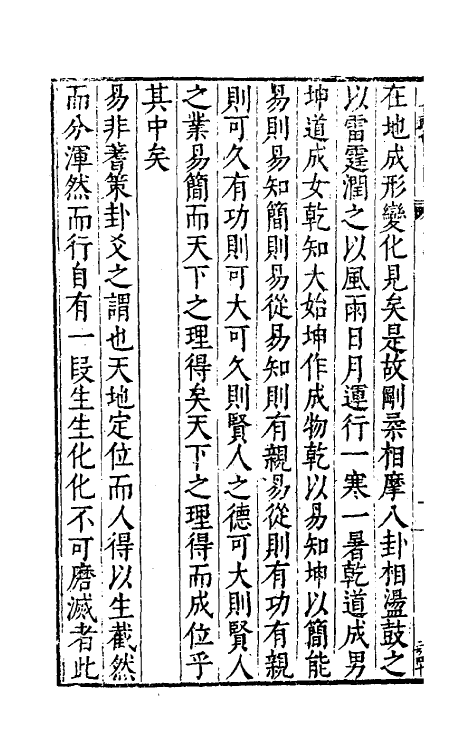 在地成形變化見矣是故剛柔相摩八卦相盪鼓之
以雷霆潤之以風雨日月運行一寒一暑乾道成男
坤道成女乾知大始坤作成物乾以易知坤以簡能
易則易知簡則易從易知則有親易從則有功有親
則可久有功則可大可久則賢人之德可大則賢人
之業易簡而天下之理得矣天下之理得而成位乎
其中矣
易非蓍策卦爻之謂也天地定位而人得以生截然
而分渾然而行自有一段生生化化不可磨滅者此